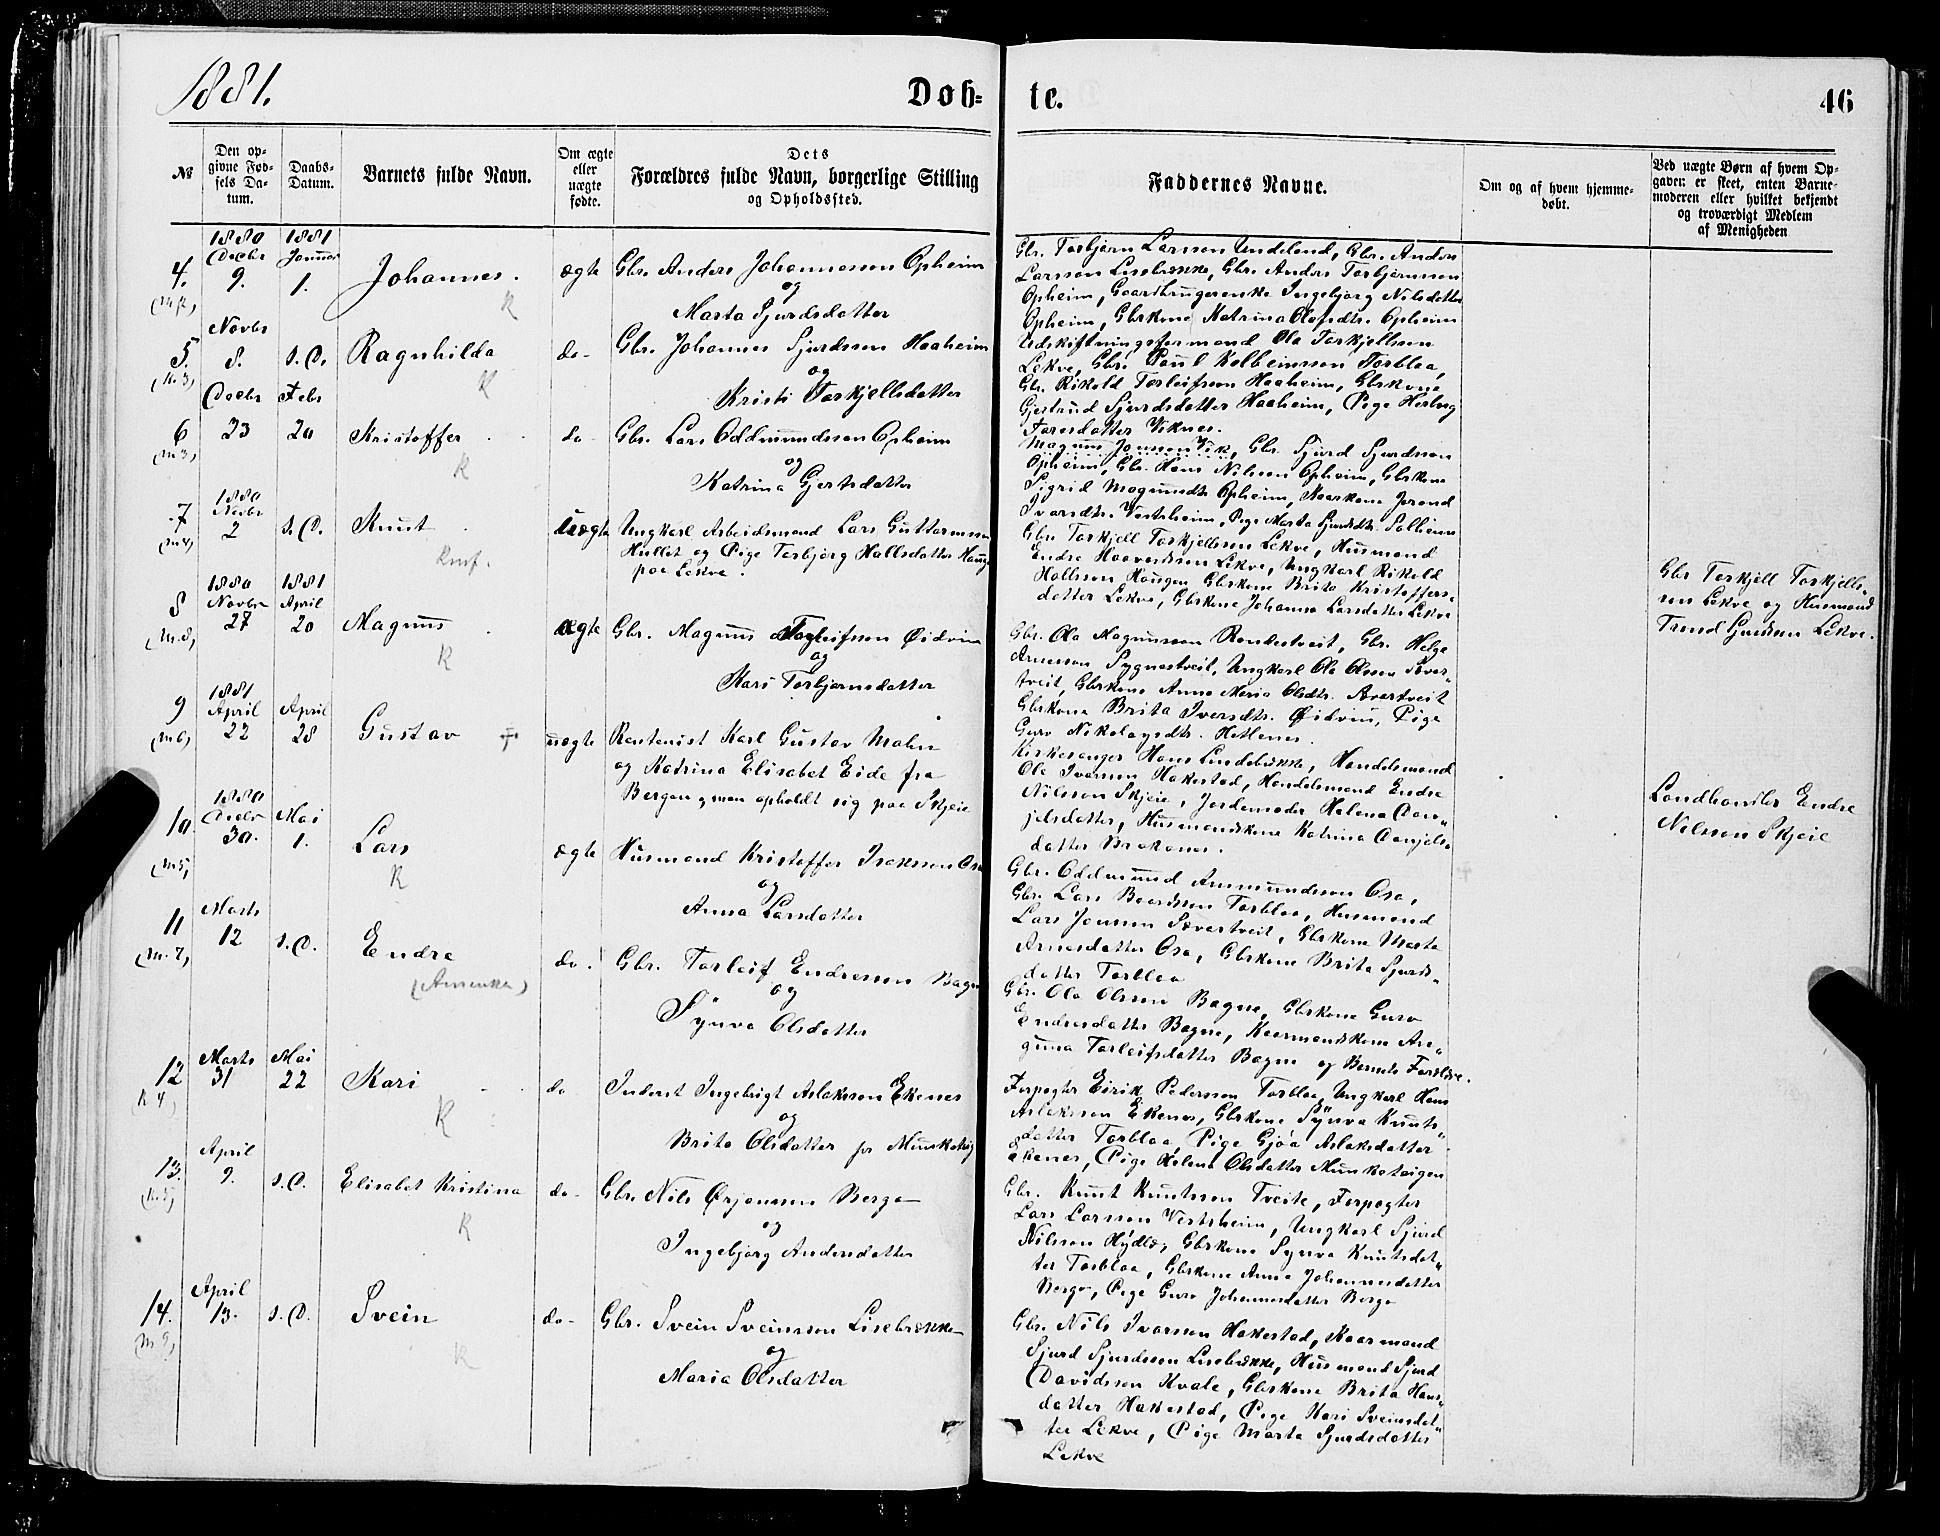 1881.
Døb=
te.
46
№
Den op-
givne Fød-
sels Da-
tum.
Daabs-
Datum.
Barnets fulde Navn.
Om ægte
eller
uægte
fødte.
Dets
Forældres fulde Navn, borgerlige Stilling
og Opholdssted.
Faddernes Navne.
Om og af hvem hjemme-
døbt.
Ved uægte Børn af hvem Op-
gaven er skeet, enten Barne-
moderen eller hvilket bekjendt
og troværdigt Medlem
af Menigheden
1880 1881
Decbr Januar
4. 9. 1. Johannes. ægte Gbr. Anders Johannesson Opheim
og
Marta Sjurdsdatter
K
Gbr. Torbjørn Larsson Undeland, Gbr. Anders
Larsson Lisebrekke, Gbr. Anders Torbjørnsson
Opheim, Gaardbrugerenke Ingebjørg Nilsdatter
Opheim, Gbrkone Katrina Olavsdtr. Opheim
Novbr
5. 8. s.D. Ragnhilda do- Gbr. Johannes Sjurdsson Haaheim
(k.3)
og
Kristi Torkjellsdatter
K
Udskiftningsformand Ola Torkjellson
Lekve, Gbr. Paul Kolbeinsson Torblaa,
Gbr. Rikold Torleifson Haaheim, Gbrkone
Gjertrud Sjurdsdatter Haaheim, Pige Herborg
Taresdatter Viknes.
Decbr Febr
6 23 20 Kristoffer do- Gbr. Lars Oddmundsson Opheim
(m3)
og
Katrina Gjertsdatter
K
Magnus Jonsson Vik, Gbr. Sjurd Sjurdsson
Opheim, Gbr. Hans Nilsson Opheim, Gbrkone
Sigrid Magnusdtr Opheim, Kaarkone Jorand
Ivarsdtr. Vestrheim, Pige Marta Sjurdsdtr. Solheim
1880
Novbr
7 2 s.D. Knut uægte Ungkarl Arbeidsmand Lars Guttormsson
(m4)
Hullet og Pige Torbjørg Hallsdatter Haug
paa Lekve.
Knf.
Gbr. Torkjell Torkjellsson Lekve, Husmand
Endre Haavardsson Lekve, Ungkarl Rikold
Hallsson Haugen Gbrkone Brita Kristoffers-
datter Lekve, Gbrkone Johanna Larsdatter Lekve
Gbr Torkjell Torkjells-
son Lekve og Husmand
Trond Sjurdson Lekve.
1880 1881
Novbr April
8 27 20 Magnus ægte Gbr. Magnus Torleifsson Øidvin
og
Kari Torbjørnsdatter
K
Gbr. Ola Magnusson Rondestveit, Gbr. Helge
Arnesson Sygnestveit, Ungkarl Ola Olsson Svar-
tveit, Gbrkone Anna Maria Olsdtr. Svartveit
Gbrkone Brita Iversdtr. Øidvin, Pige
Guro Nikolaysdtr. Hetlenes.
1881
April April
9 22 28 Gustav uægte Rentenist Karl Gustav Mohn
(m6)
og Katrina Elisabet Eide fra
Bergen, men opholdt sig paa Skjeie
Kirkesanger Hans Lindebrekke, Handelsmand
Ola Ivarson Hakestad, Handelsmand Endre
Nilsson Skjeie, Jordemoder Helena Dan-
jelsdatter, Husmandskone Katrina Danjels-
datter Brakanes.
Landhandler Endre
Nilsson Skjeie
1880
Decbr Mai
10. 30. 1. Lars ægte Husmand Kristoffer Isaksson Osa
(m5)
og
Anna Larsdatter
K
Gbr. Oddmund Ammundsson Osa,
Gbr. Lars Baardsson Torblaa, Husmand
Lars Jonsson Svartveit, Gbrkone Marta
Arnesdatter Osa, Gbrkone Brita Sjurds-
datter Torblaa
Marts
11 12 s.D. Endre do. Gbr. Torleif Endresson Bagne
(m.7)
og
(Amerika)
Synva Olsdatter
Gbr. Ola Olsson Bagne, Gbrkone Guro
Endresdatter Bagne, Kaarmandskone Are-
guna Torleifsdatter Bagne og Barnets Forældre.
Marts Mai
12 31 22 Kari do Inderst Ingebrigt Aslaksson Ekenes
(k4)
og
Brita Olsdatter
K
Forpagter Eirik Pederssen Torblaa, Ungkarl Hans
Aslaksson Ekenes, Gbrkone Synva Knuts-
datter Torblaa, Pige Gjøa Aslaksdatter
Ekenes, Pige Helena Olsdatter Munketeigen
April
13. 9. s.D. Elisabet Kristina do- Gbr. Nils Ørjansson Berge
(k.5)
og
Ingebjørg Andersdatter
K
Gbr. Knut Knutsson Tveite, Forpagter
Lars Larsson Vestrheim, Ungkarl Sjurd
Nilsson Hydle, Gbrkone Synva Knutsdat-
ter Torblaa, Gbrkone Anna Johannesdatter
Berge, Pige Guro Johannesdatter Berge
April
14. 13. s.D. Svein do- Gbr. Svein Sveinsson Lisebrekke
og
Maria Olsdatter
K
Gbr. Nils Ivarson Hakestad, Kaarmand
Sjurd Sjurdsson Lisebrekke, Husmand Sjurd
Davidsson Kvale, Gbrkone Brita Hans-
datter Hakestad, Pige Kari Sveinsdat-
ter Lekve, Pige Marta Sjurdsdatter
Lekve